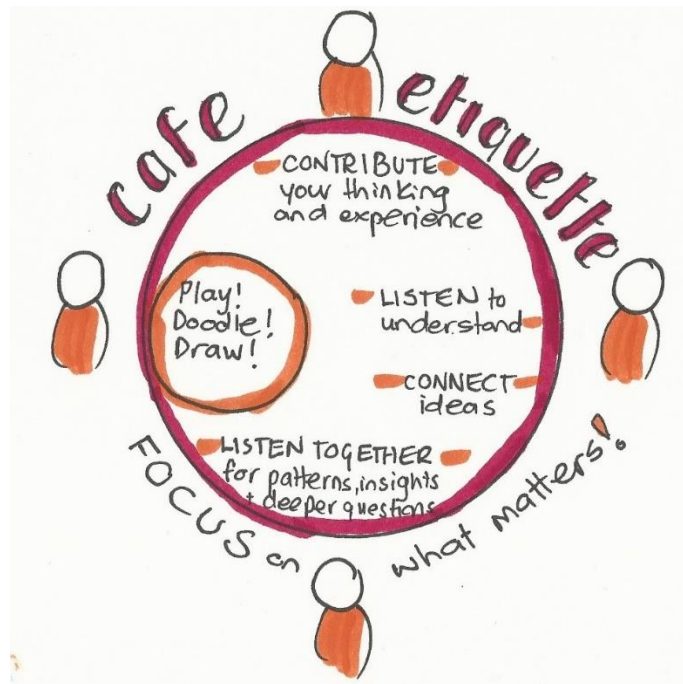 cafe etiquette
CONTRIBUTE
your thinking
and experience
Play!
Doodle!
Draw!
LISTEN to
understand
CONNECT
ideas
LISTEN TOGETHER
for patterns, insights
+ deeper questions
FOCUS on what matters!